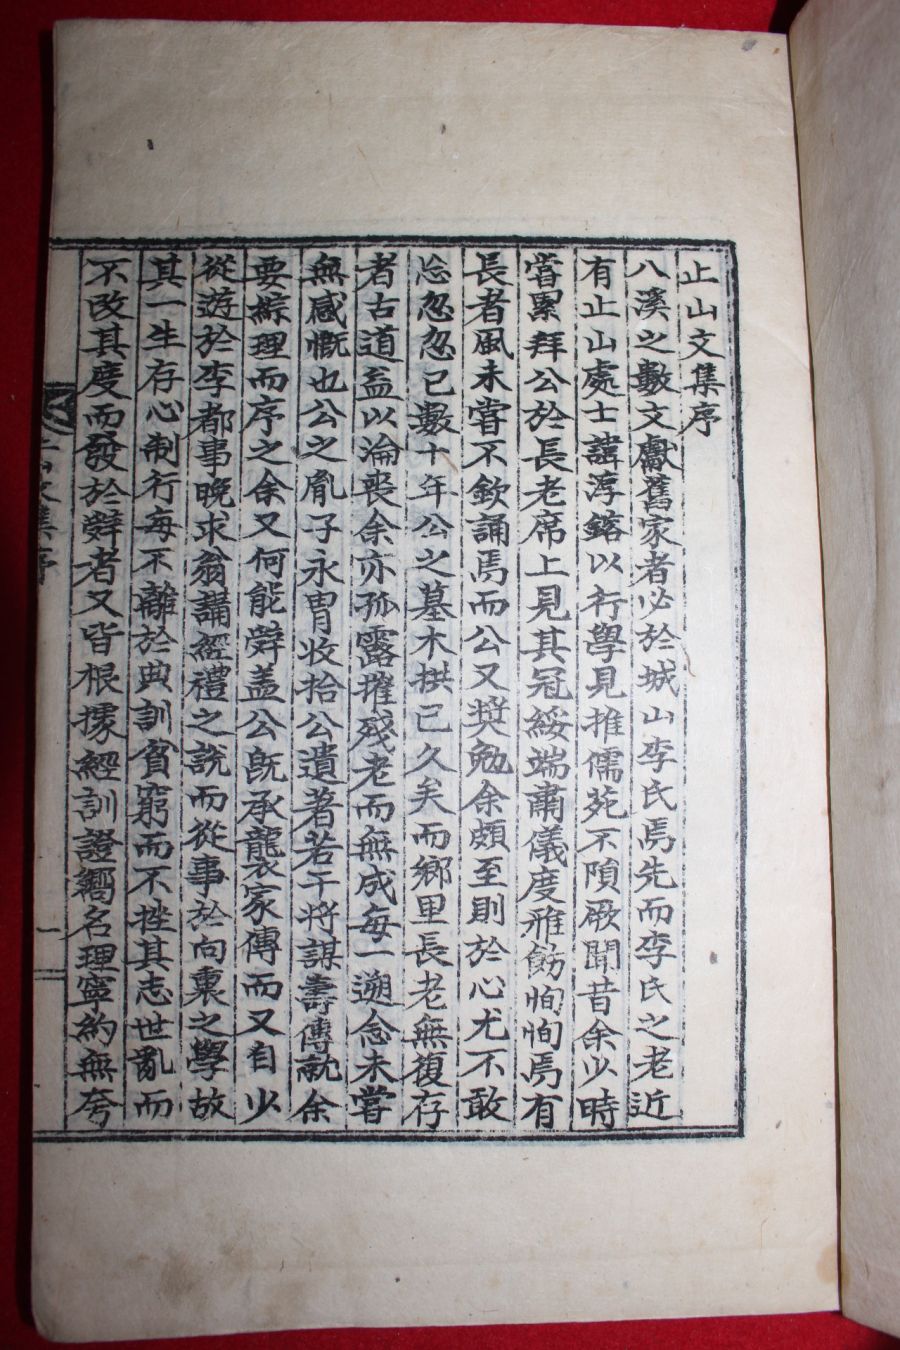 止山文集序
八溪之數文獻舊家者必於城山李氏焉先而李氏之老近
有止山處士諱淳鎔以行學見推儒苑不隕厥聞昔余少時
嘗累拜公於長老席上見其冠綏端肅儀度雅飭恂恂焉有
長者風未嘗不欽誦焉而公又奬勉余頗至則於心尤不敢
忘忽忽已數十年公之墓木拱已久矣而鄕里長老無復存
者古道益以淪喪余亦孤露摧殘老而無成每一遡念未嘗
無感慨也公之胤子永胄收拾公遺著若干將謀壽傳而就余
要綜理而序之余又何能辭盖公旣承襲家傳而又自少
從遊於李都事晩求翁講經禮之說而從事於向裏之學故
其一生存心制行每不離於典訓貧窮而不挫其志世亂而
不改其度而發於辭者又皆根據經訓證嚮名理寧約無夸
止山文集序
一